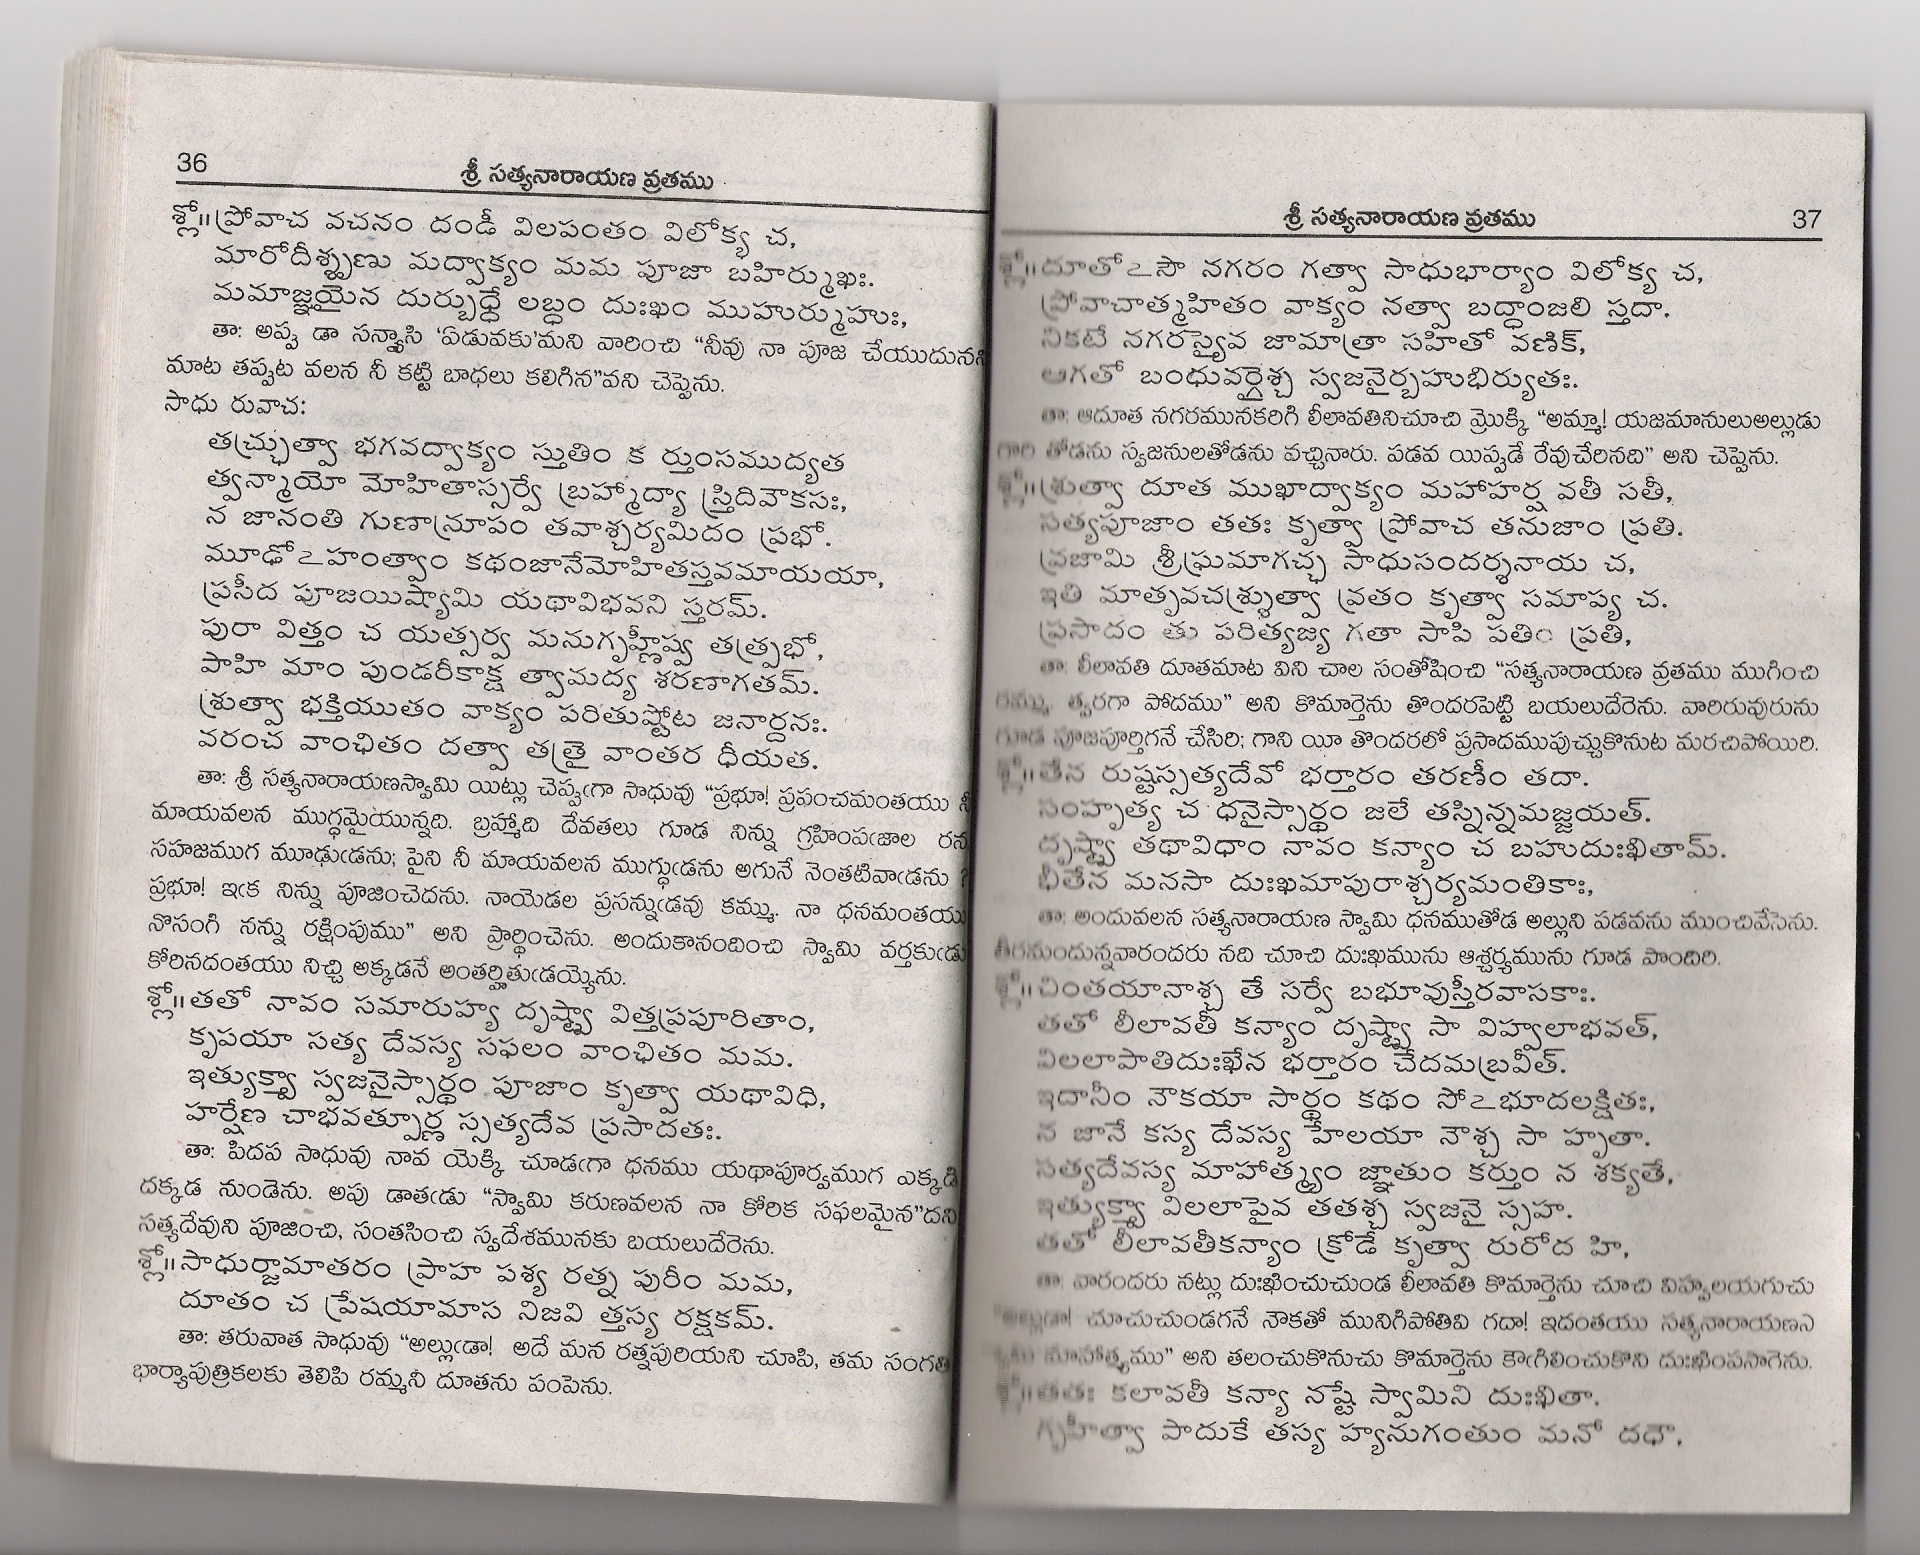 36
శ్రీ సత్యనారాయణ వ్రతము
శ్లో॥ ప్రోవాచ వచనం దండీ విలపంతం విలోక్య చ,
మారోదీశ్శృణు మద్వాక్యం మమ పూజా బహిర్ముఖః.
మమాజ్ఞయైన దుర్బుద్ధే లబ్ధం దుఃఖం ముహుర్ముహుః,
తా: అప్ప డా సన్న్యాసి ‘ఏడువకు’మని వారించి “నీవు నా పూజ చేయుదునని
మాట తప్పుట వలన నీ కట్టి బాధలు కలిగిన”వని చెప్పెను.
సాధు రువాచ:
తచ్ఛ్రుత్వా భగవద్వాక్యం స్తుతిం క ర్తుంసముద్యత
త్వన్మాయో మోహితాస్సర్వే బ్రహ్మాద్యా స్త్రిదివౌకసః,
న జానంతి గుణాన్రూపం తవాశ్చర్యమిదం ప్రభో.
మూఢోఽహంత్వాం కథంజానేమోహితస్తవమాయయా,
ప్రసీద పూజయిష్యామి యథావిభవని స్తరమ్.
పురా విత్తం చ యత్సర్వ మనుగృహ్ణీష్వ తత్ప్రభో,
పాహి మాం పుండరీకాక్ష త్వామద్య శరణాగతమ్.
శ్రుత్వా భక్తియుతం వాక్యం పరితుష్టోట జనార్దనః.
వరంచ వాంఛితం దత్వా తత్రై వాంతర ధీయత.
తా: శ్రీ సత్యనారాయణస్వామి యిట్లు చెప్పఁగా సాధువు “ప్రభూ! ప్రపంచమంతయు నీ
మాయవలన ముగ్ధమైయున్నది. బ్రహ్మాది దేవతలు గూడ నిన్ను గ్రహింపఁజాల రన
సహజముగ మూఢుఁడను; పైని నీ మాయవలన ముగ్ధుఁడను అగునే నెంతటివాఁడను ?
ప్రభూ! ఇఁక నిన్ను పూజించెదను. నాయెడల ప్రసన్నుఁడవు కమ్ము. నా ధనమంతయు
నొసంగి నన్ను రక్షింపుము” అని ప్రార్థించెను. అందుకానందించి స్వామి వర్తకుఁడు
కోరినదంతయు నిచ్చి అక్కడనే అంతర్హితుఁడయ్యెను.
శ్లో॥ తతో నావం సమారుహ్య దృష్ట్వా విత్తప్రపూరితాం,
కృపయా సత్య దేవస్య సఫలం వాంఛితం మమ.
ఇత్యుక్త్వా స్వజనైస్సార్థం పూజాం కృత్వా యథావిధి,
హర్షేణ చాభవత్పూర్ణ స్సత్యదేవ ప్రసాదతః.
తా: పిదప సాధువు నావ యెక్కి చూడఁగా ధనము యథాపూర్వముగ ఎక్కడి
దక్కడ నుండెను. అపు డాతఁడు “స్వామి కరుణవలన నా కోరిక సఫలమైన”దని
సత్యదేవుని పూజించి, సంతసించి స్వదేశమునకు బయలుదేరెను.
శ్లో॥ సాధుర్జామాతరం ప్రాహ పశ్య రత్న పురీం మమ,
దూతం చ ప్రేషయామాస నిజవి త్తస్య రక్షకమ్.
తా: తరువాత సాధువు “అల్లుఁడా! అదే మన రత్నపురియని చూపి, తమ సంగతి
భార్యాపుత్రికలకు తెలిపి రమ్మని దూతను పంపెను.
శ్రీ సత్యనారాయణ వ్రతము
37
శ్లో॥ దూతోఽసౌ నగరం గత్వా సాధుభార్యాం విలోక్య చ,
ప్రోవాచాత్మహితం వాక్యం నత్వా బద్ధాంజలి స్తదా.
నికటే నగరస్యైవ జామాత్రా సహితో వణిక్,
ఆగతో బంధువర్గైశ్చ స్వజనైర్బహుభిర్యుతః.
తా: ఆదూత నగరమునకరిగి లీలావతినిచూచి మ్రొక్కి “అమ్మా! యజమానులుఅల్లుడు
గారి తోడను స్వజనులతోడను వచ్చినారు. పడవ యిప్పడే రేవుచేరినది” అని చెప్పెను.
శ్లో॥ శ్రుత్వా దూత ముఖాద్వాక్యం మహాహర్ష వతీ సతీ,
సత్యపూజాం తతః కృత్వా ప్రోవాచ తనుజాం ప్రతి.
వ్రజామి శ్రీఘ్రమాగచ్ఛ సాధుసందర్శనాయ చ,
ఇతి మాతృవచశ్శ్రుత్వా వ్రతం కృత్వా సమాప్య చ.
ప్రసాదం తు పరిత్యజ్య గతా సాపి పతిం ప్రతి,
తా: లీలావతి దూతమాట విని చాల సంతోషించి “సత్యనారాయణ వ్రతము ముగించి
రమ్ము, త్వరగా పోదము” అని కొమార్తెను తొందరపెట్టి బయలుదేరెను. వారిరువురును
గూడ పూజపూర్తిగనే చేసిరి; గాని యీ తొందరలో ప్రసాదముపుచ్చుకొనుట మరచిపోయిరి.
శ్లో॥ తేన రుష్టస్సత్యదేవో భర్తారం తరణీం తదా.
సంహృత్య చ ధనైస్సార్థం జలే తస్నిన్నమజ్జయత్.
దృష్ట్వా తథావిధాం నావం కన్యాం చ బహుదుఃఖితామ్.
భీతేన మనసా దుఃఖమాపురాశ్చర్యమంతికాః,
తా: అందువలన సత్యనారాయణ స్వామి ధనముతోడ అల్లుని పడవను ముంచివేసెను.
తీరమందున్నవారందరు నది చూచి దుఃఖమును ఆశ్చర్యమును గూడ పొందిరి.
శ్లో॥ చింతయానాశ్చ తే సర్వే బభూవుస్తీరవాసకాః.
తతో లీలావతీ కన్యాం దృష్ట్వా సా విహ్వలాభవత్,
విలలాపాతిదుఃఖేన భర్తారం చేదమబ్రవీత్.
ఇదానీం నౌకయా సార్థం కథం సోఽభూదలక్షితః,
న జానే కస్య దేవస్య హేలయా నౌశ్చ సా హృతా.
సత్యదేవస్య మాహాత్మ్యం జ్ఞాతుం కర్తుం న శక్యతే,
ఇత్యుక్త్వా విలలాపైవ తతశ్చ స్వజనై స్సహ.
తతో లీలావతీకన్యాం క్రోడే కృత్వా రురోద హి,
తా: వారందరు నట్లు దుఃఖించుచుండ లీలావతి కొమార్తెను చూచి విహ్వలయగుచు
“అల్లుడా! చూచుచుండగనే నౌకతో మునిగిపోతివి గదా! ఇదంతయు సత్యనారాయణుని
మాహాత్మ్యము” అని తలంచుకొనుచు కొమార్తెను కౌగిలించుకొని దుఃఖింపసాగెను.
శ్లో॥ తతః కలావతీ కన్యా నష్టే స్వామిని దుఃఖితా.
గృహీత్వా పాదుకే తస్య హ్యనుగంతుం మనో దధౌ,